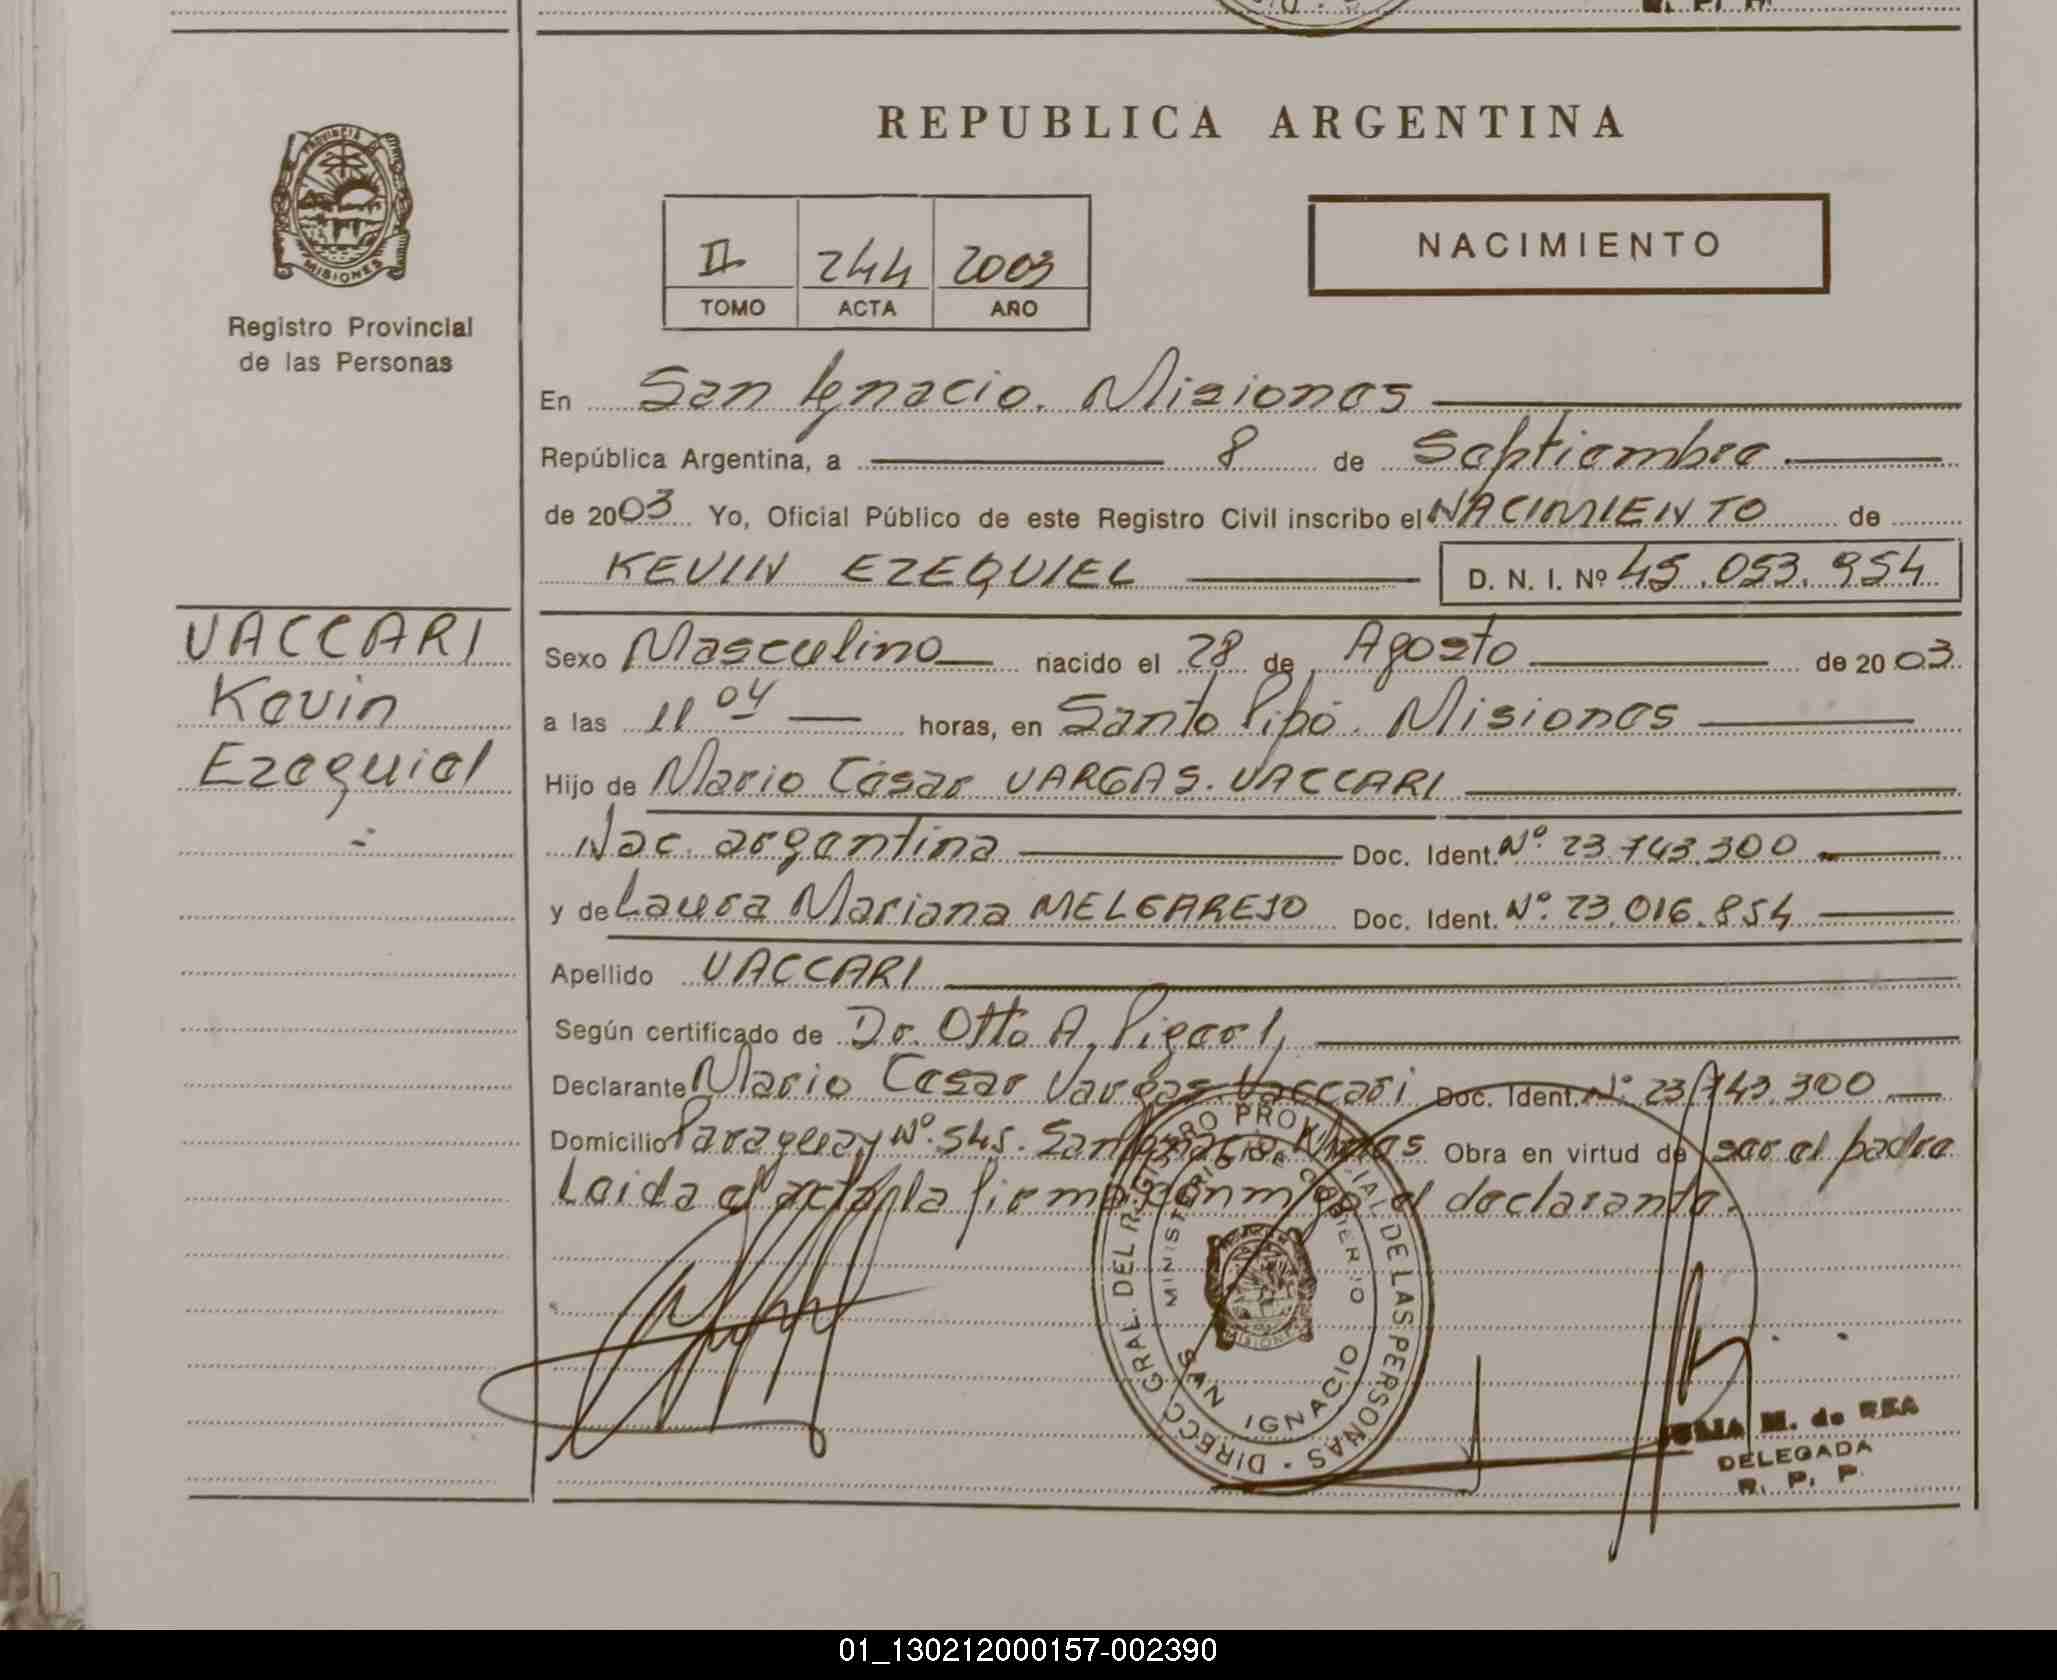 REPUBLICA ARGENTINA
PROVINCIA DE
MISIONES
Registro Provincial
de las Personas
II 244 2003
TOMO ACTA AÑO
NACIMIENTO
En San Ignacio. Misiones
República Argentina, a 8 de Septiembre.
de 2003 Yo, Oficial Público de este Registro Civil inscribo el NACIMIENTO de
KEVIN EZEQUIEL D. N. I. Nº 45.053.954
VACCARI
Kevin
Ezequiel
Sexo Masculino nacido el 28 de Agosto de 2003
a las 11 04 horas, en Santo Pipó. Misiones
Hijo de Mario César VARGAS. VACCARI
Nac. argentina Doc. Ident. Nº 23.743.300
y de Laura Mariana MELGAREJO Doc. Ident. Nº. 23.016.854
Apellido VACCARI
Según certificado de Dr. Otto A.
Declarante Mario Cesar Vargas Vaccari Doc. Ident. Nº 23.743.300
Domicilio Paraguay Nº. 545. San Ignacio Mnes Obra en virtud de ser el padre
Leida el acta, la firma conmigo el declarante.
DIRECC. GRAL. DEL REGISTRO PROVINCIAL DE LAS PERSONAS
MINISTERIO DE GOBIERNO
SAN IGNACIO
JULIA M. de REA
DELEGADA
R. P. P.
01_130212000157-002390